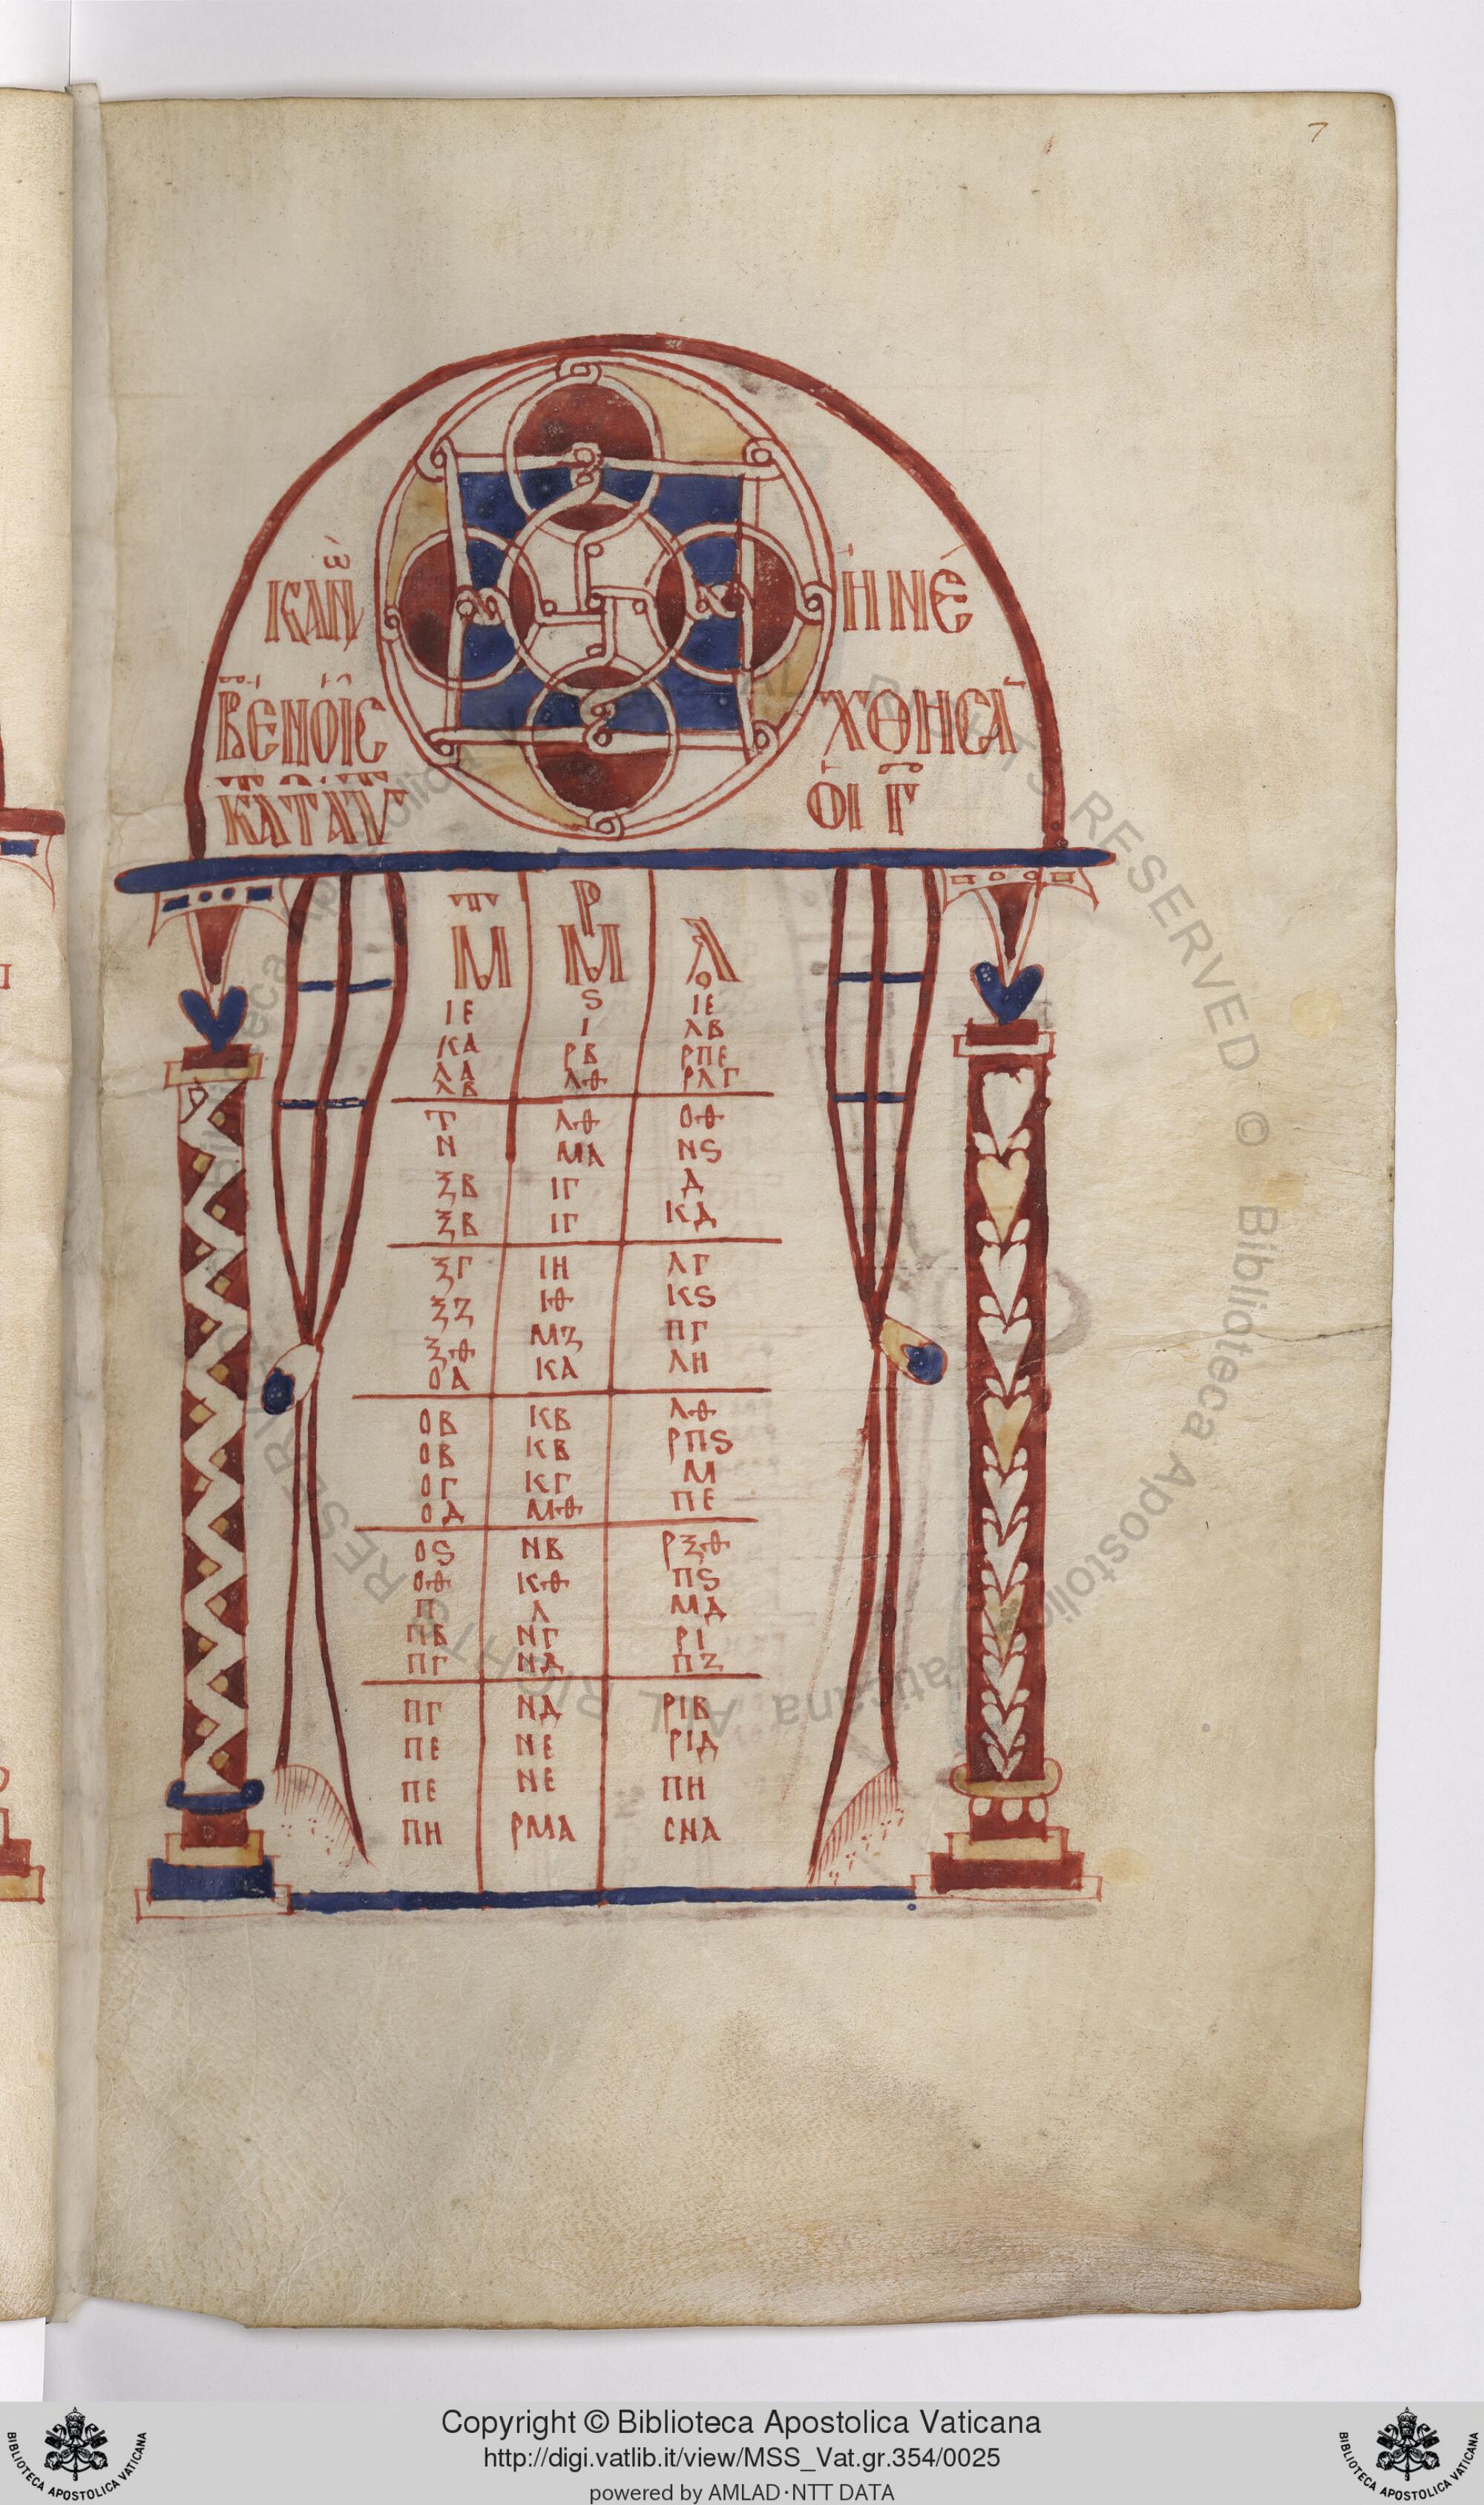 7
ΚΑΝω ΗΝΈ
ΒΈΝΟΙϹ ΧΘΗϹΑ
ΟΙ Γ
Μ Μ Λ
ΙΕ Ϛ ΙΕ
ΚΑ Ι ΛΒ
ΛΑ ΡΒ ΡΠΕ
ΛΒ ΛΘ ΡΛΓ
Τ ΛΘ ΟΘ
Ν ΜΑ ΝϚ
ΞΒ ΙΓ Δ
ΞΒ ΙΓ ΚΔ
ΞΓ ΙΗ ΛΓ
ΞΖ ΙΘ ΚϚ
ΞΘ ΜΖ ΠΓ
ΟΑ ΚΑ ΛΗ
ΟΒ ΚΒ ΛΘ
ΟΒ ΚΒ ΡΠϚ
ΟΓ ΚΓ Μ
ΟΔ ΜΘ ΠΕ
ΟϚ ΝΒ ΡΞΘ
ΟΘ ΚΘ ΠϚ
Π Λ ΜΔ
ΠΒ ΝΓ ΡΙ
ΠΓ ΝΔ ΠΖ
ΠΓ ΝΔ ΡΙΒ
ΠΕ ΝΕ ΡΙΔ
ΠΕ ΝΕ ΠΗ
ΠΗ ΡΜΑ ϹΝΑ
Biblioteca Apostolica Vaticana ALL RIGHTS RESERVED ©
Copyright © Biblioteca Apostolica Vaticana
http://digi.vatlib.it/view/MSS_Vat.gr.354/0025
powered by AMLAD·NTT DATA
BIBLIOTECA APOSTOLICA VATICANA
BIBLIOTECA APOSTOLICA VATICANA